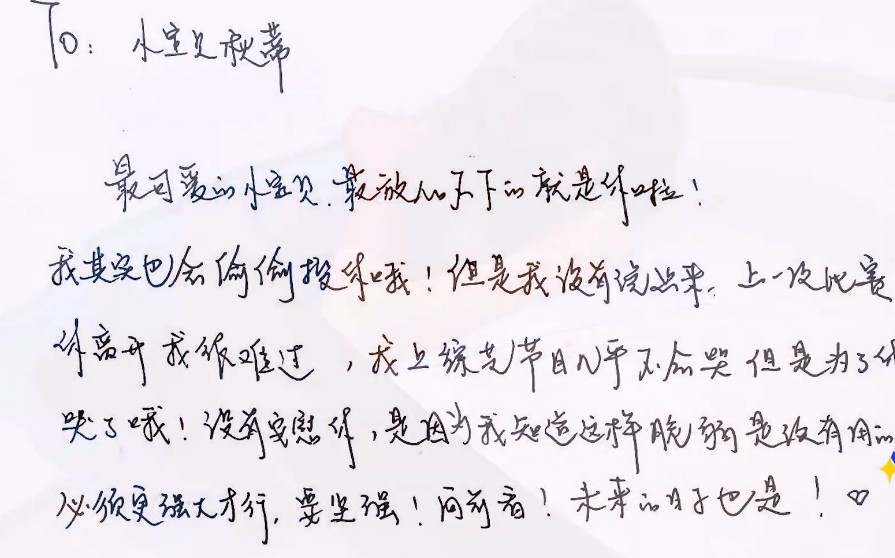 To: 小宝贝秋蒂
最可爱的小宝贝.最放心不下的就是你啦！
我其实也会偷偷投你哦！但是我没有说出来. 上一次比赛
你离开 我很难过，我上综艺节目几乎不会哭 但是为了你
哭了哦！没有安慰你，是因为我知道这样脆弱是没有用的
必须更强大才行, 要坚强！向前看！未来的日子也是！♡